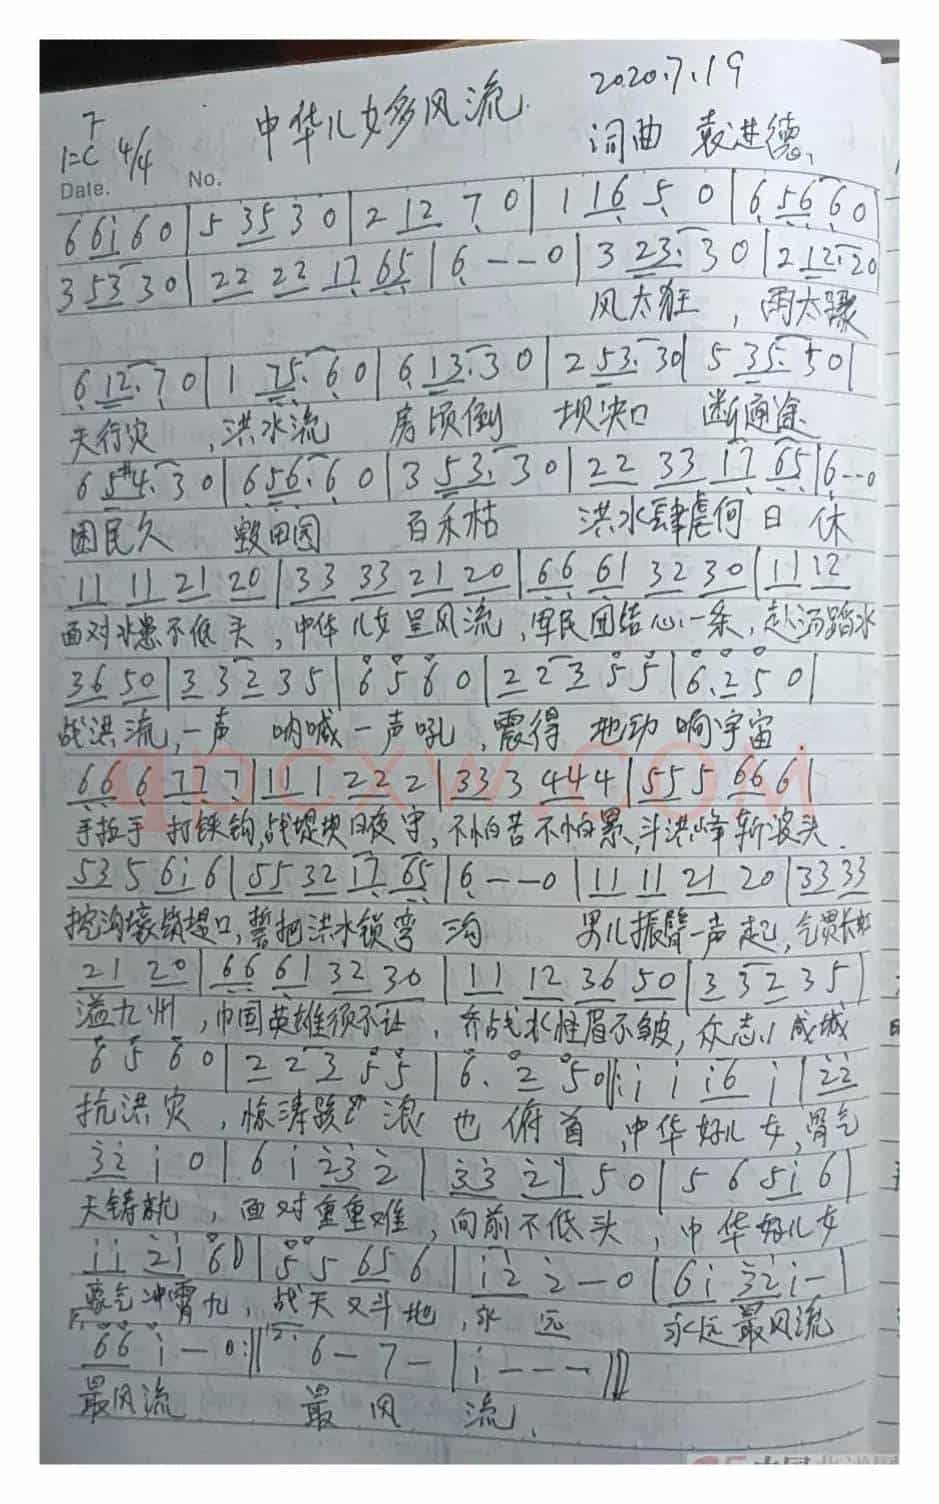 2020.7.19
中华儿女多风流
F
1=C 4/4
词曲 袁进德
Date. No.
6 6i 6 0 | 5 35 3 0 | 2 12 7 0 | 1 16 5 0 | 6 56 6 0
3 53 3 0 | 22 22 17 65 | 6 - - 0 | 3 23. 3 0 | 2 12. 20
风太狂 ，雨太骤
6 12. 7 0 | 1 75. 6 0 | 6 13. 3 0 | 2 53. 30 | 5 35. 50 |
天行灾 ，洪水流 房顷倒 坝决口 断通途
6 5#4. 3 0 | 6 56. 6 0 | 3 53. 3 0 | 22 33 17 65 | 6 - - 0
困民久 毁田园 百禾枯 洪水肆虐何日休
11 11 21 20 | 33 33 21 20 | 66 61 32 30 | 11 12
面对水患不低头，中华儿女呈风流，军民团结心一条，赴汤蹈水
36 50 | 3 3 2 3 5 | 6 5 6 0 | 2 2 3 5 5 | 6. 2 5 0 |
战洪流，一声 呐喊一声吼，震得 地动 响宇宙.
66 6 77 7 | 11 1 22 2 | 33 3 44 4 | 55 5 66 6 |
手拉手 打铁钩，战堤坝日夜守，不怕苦不怕累，斗洪峰 斩波头.
53 5 6i 6 | 55 32 17 65 | 6 - - - 0 | 11 11 21 20 | 33 33
挖沟壕锁堤口，誓把洪水锁弯 沟 男儿振臂一声起，气贯长虹
21 20 | 66 61 32 30 | 11 12 36 50 | 3 3 2 3 5 |
溢九州 ，巾国英雄须不让 ，奋战水性眉不皱，众志 成城
6 5 6 0 | 2 2 3 5 5 | 6. 2 5 0 ||: i i i6 i | 22
抗洪灾 ，惊涛 浪 也 俯首 ，中华好儿女，骨气
32 i 0 | 6 i 23 2 | 33 21 5 0 | 5 6 5i 6 |
天铸就 ，面对重重难 ，向前不低头 ，中华好儿女
ii 2i 60 | 5 5 65 6 | i2 2 - 0 | 6i 32 i - |
豪气冲霄九，战天又斗地，永 远 永远最风流
66 i - 0 :|| 2. 6 - 7 - | i - - - |||
最风流 最 风 流.
qpcxw.com